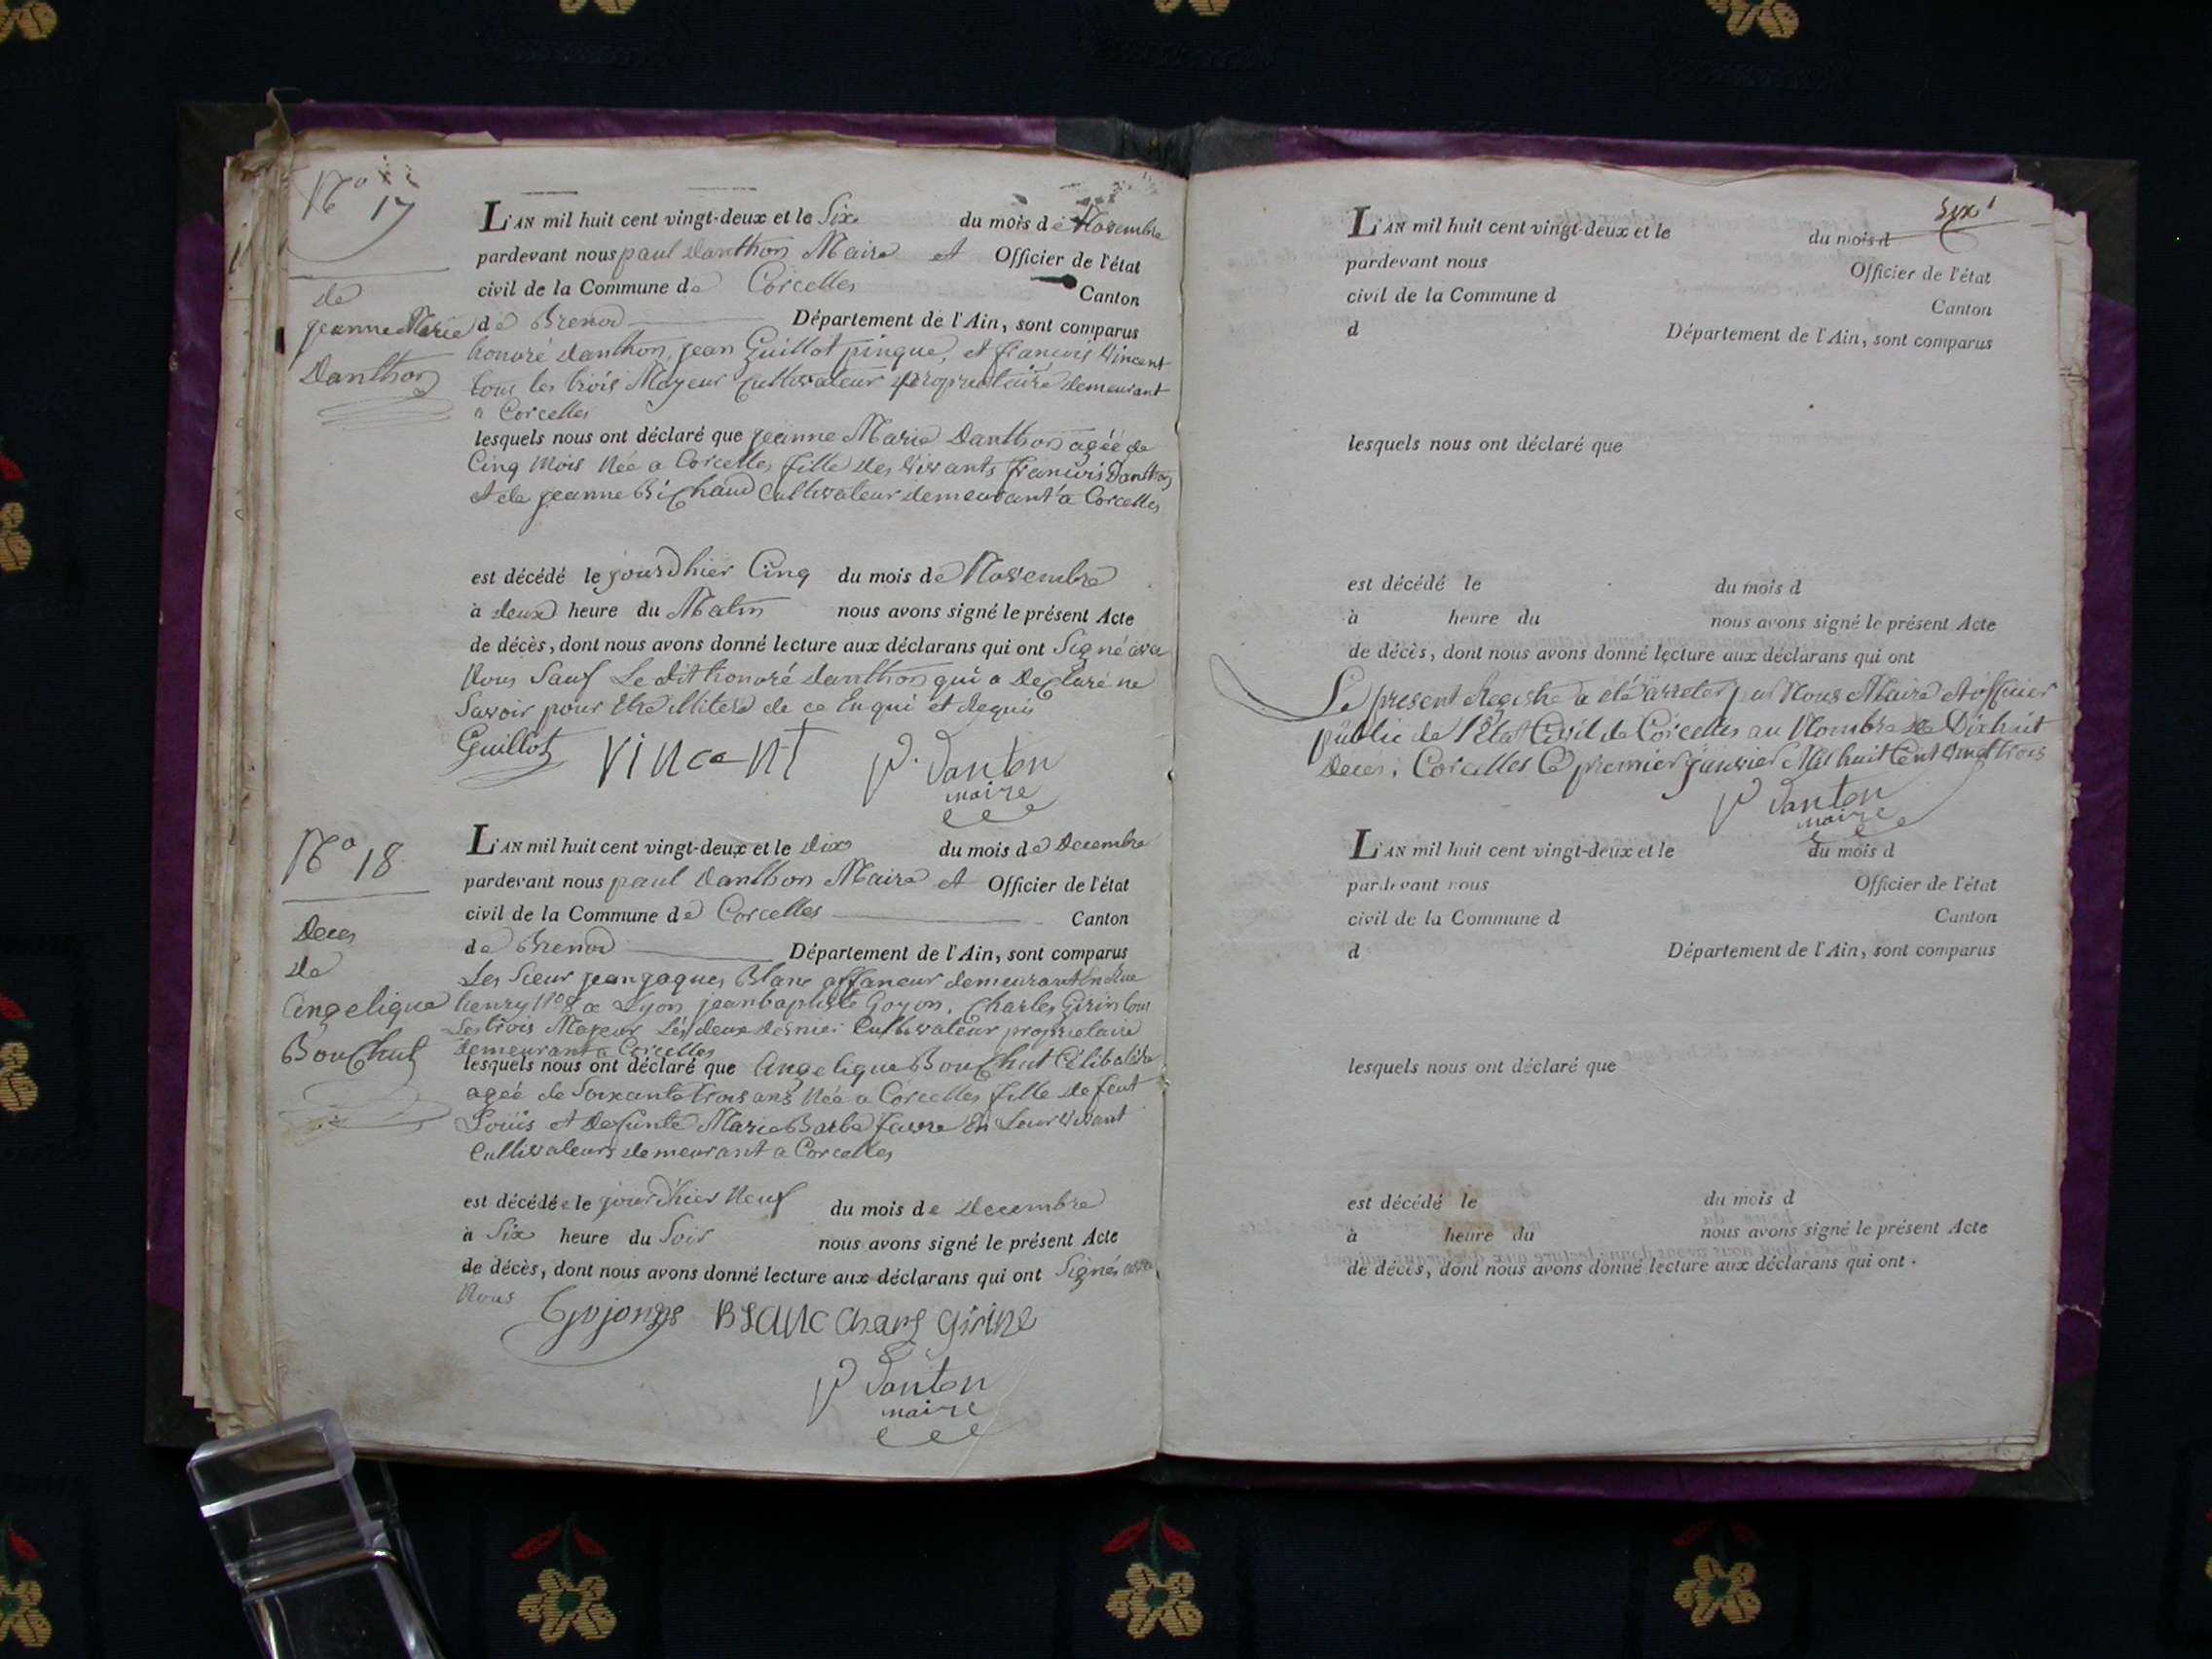 N.º 17
de
jeanne Marie
Danthon
L'AN mil huit cent vingt-deux et le Six du mois de Novembre
pardevant nous paul Danthon Maire et Officier de l'état
civil de la Commune de Corcelles Canton
de Brenod Département de l'Ain, sont comparus
honoré danthon, jean Guillot pingue, et françois Vincent
tous les trois Majeur Cultivateur propriétaire demeurant
a Corcelles
lesquels nous ont déclaré que jeanne Marie Danthon agéé de
Cinq Mois Née a Corcelles fille des Vivants françois Danthon
et de jeanne Bichaud Cultivateur demeurant a Corcelles
est décédé le jourdhier Cinq du mois de Novembre
à deux heure du Matin nous avons signé le présent Acte
de décès, dont nous avons donné lecture aux déclarans qui ont Signé avec
Nous Sauf Le dit honoré danthon qui a Declaré ne
Savoir pour de ce Enqui et Requis
Guillot Vincent P. Danton
maire
N.º 18
Deces
de
Angelique
Bouchut
L'AN mil huit cent vingt-deux et le dix du mois de Decembre
pardevant nous paul Danthon Maire et Officier de l'état
civil de la Commune de Corcelles Canton
de Brenod Département de l'Ain, sont comparus
Les Sieur jean jaques Blanc affaneur demeurant En Rue
henry nº 8 a Lyon jean baptiste Goyon, Charles Girin tous
Les trois Majeur Les deux dernier Cultivateur proprietaire
demeurant a Corcelles
lesquels nous ont déclaré que Angelique Bouchut Célibataire
agéé de Soixante trois ans Née a Corcelles fille de feut
Louis et Defunte Marie Barbe favre En Leur Vivant
Cultivateurs demeurant a Corcelles
est décédée le jour d'hier Neuf du mois de Decembre
à Six heure du Soir nous avons signé le présent Acte
de décès, dont nous avons donné lecture aux déclarans qui ont Signés avec
Nous
Blanc Charle Girine
P Danton
maire
Six
L'AN mil huit cent vingt-deux et le du mois d
pardevant nous Officier de l'état
civil de la Commune d Canton
d Département de l'Ain, sont comparus
lesquels nous ont déclaré que
est décédé le du mois d
à heure du nous avons signé le présent Acte
de décès, dont nous avons donné lecture aux déclarans qui ont
Le present Registre a été arreter par Nous Maire et officier
public de l'état Civil de Corcelles au Nombre de Dixhuit
Deces. Corcelles Le premier janvier Mil huit Cent vingt trois
P Danton
maire
L'AN mil huit cent vingt-deux et le du mois d
pardevant nous Officier de l'état
civil de la Commune d Canton
d Département de l'Ain, sont comparus
lesquels nous ont déclaré que
est décédé le du mois d
à heure du nous avons signé le présent Acte
de décès, dont nous avons donné lecture aux déclarans qui ont